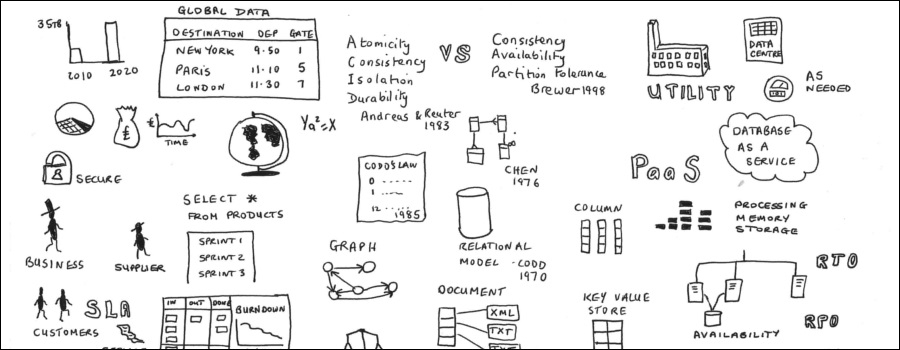 GLOBAL DATA
35TB
2010 2020
DESTINATION DEP GATE
NEW YORK 9.50 1
PARIS 11.10 5
LONDON 11.30 7
Atomicity
Consistency
Isolation
Durability
Andreas & Reuter
1983
VS
Consistency
Availability
Partition Tolerance
Brewer 1998
DATA
CENTRE
UTILITY
AS
NEEDED
£
£
TIME
Ya²=X
SECURE
CODD'S LAW
0 ------
1 ------
12 ------
1985
CHEN
1976
DATABASE
AS A
SERVICE
PaaS
SELECT *
FROM PRODUCTS
SPRINT 1
SPRINT 2
SPRINT 3
BUSINESS
SUPPLIER
GRAPH
RELATIONAL
MODEL - CODD
1970
COLUMN
PROCESSING
MEMORY
STORAGE
RTO
RPO
AVAILABILITY
CUSTOMERS
SLA
IN OUT DONE
BURNDOWN
DOCUMENT
XML
TXT
KEY VALUE
STORE